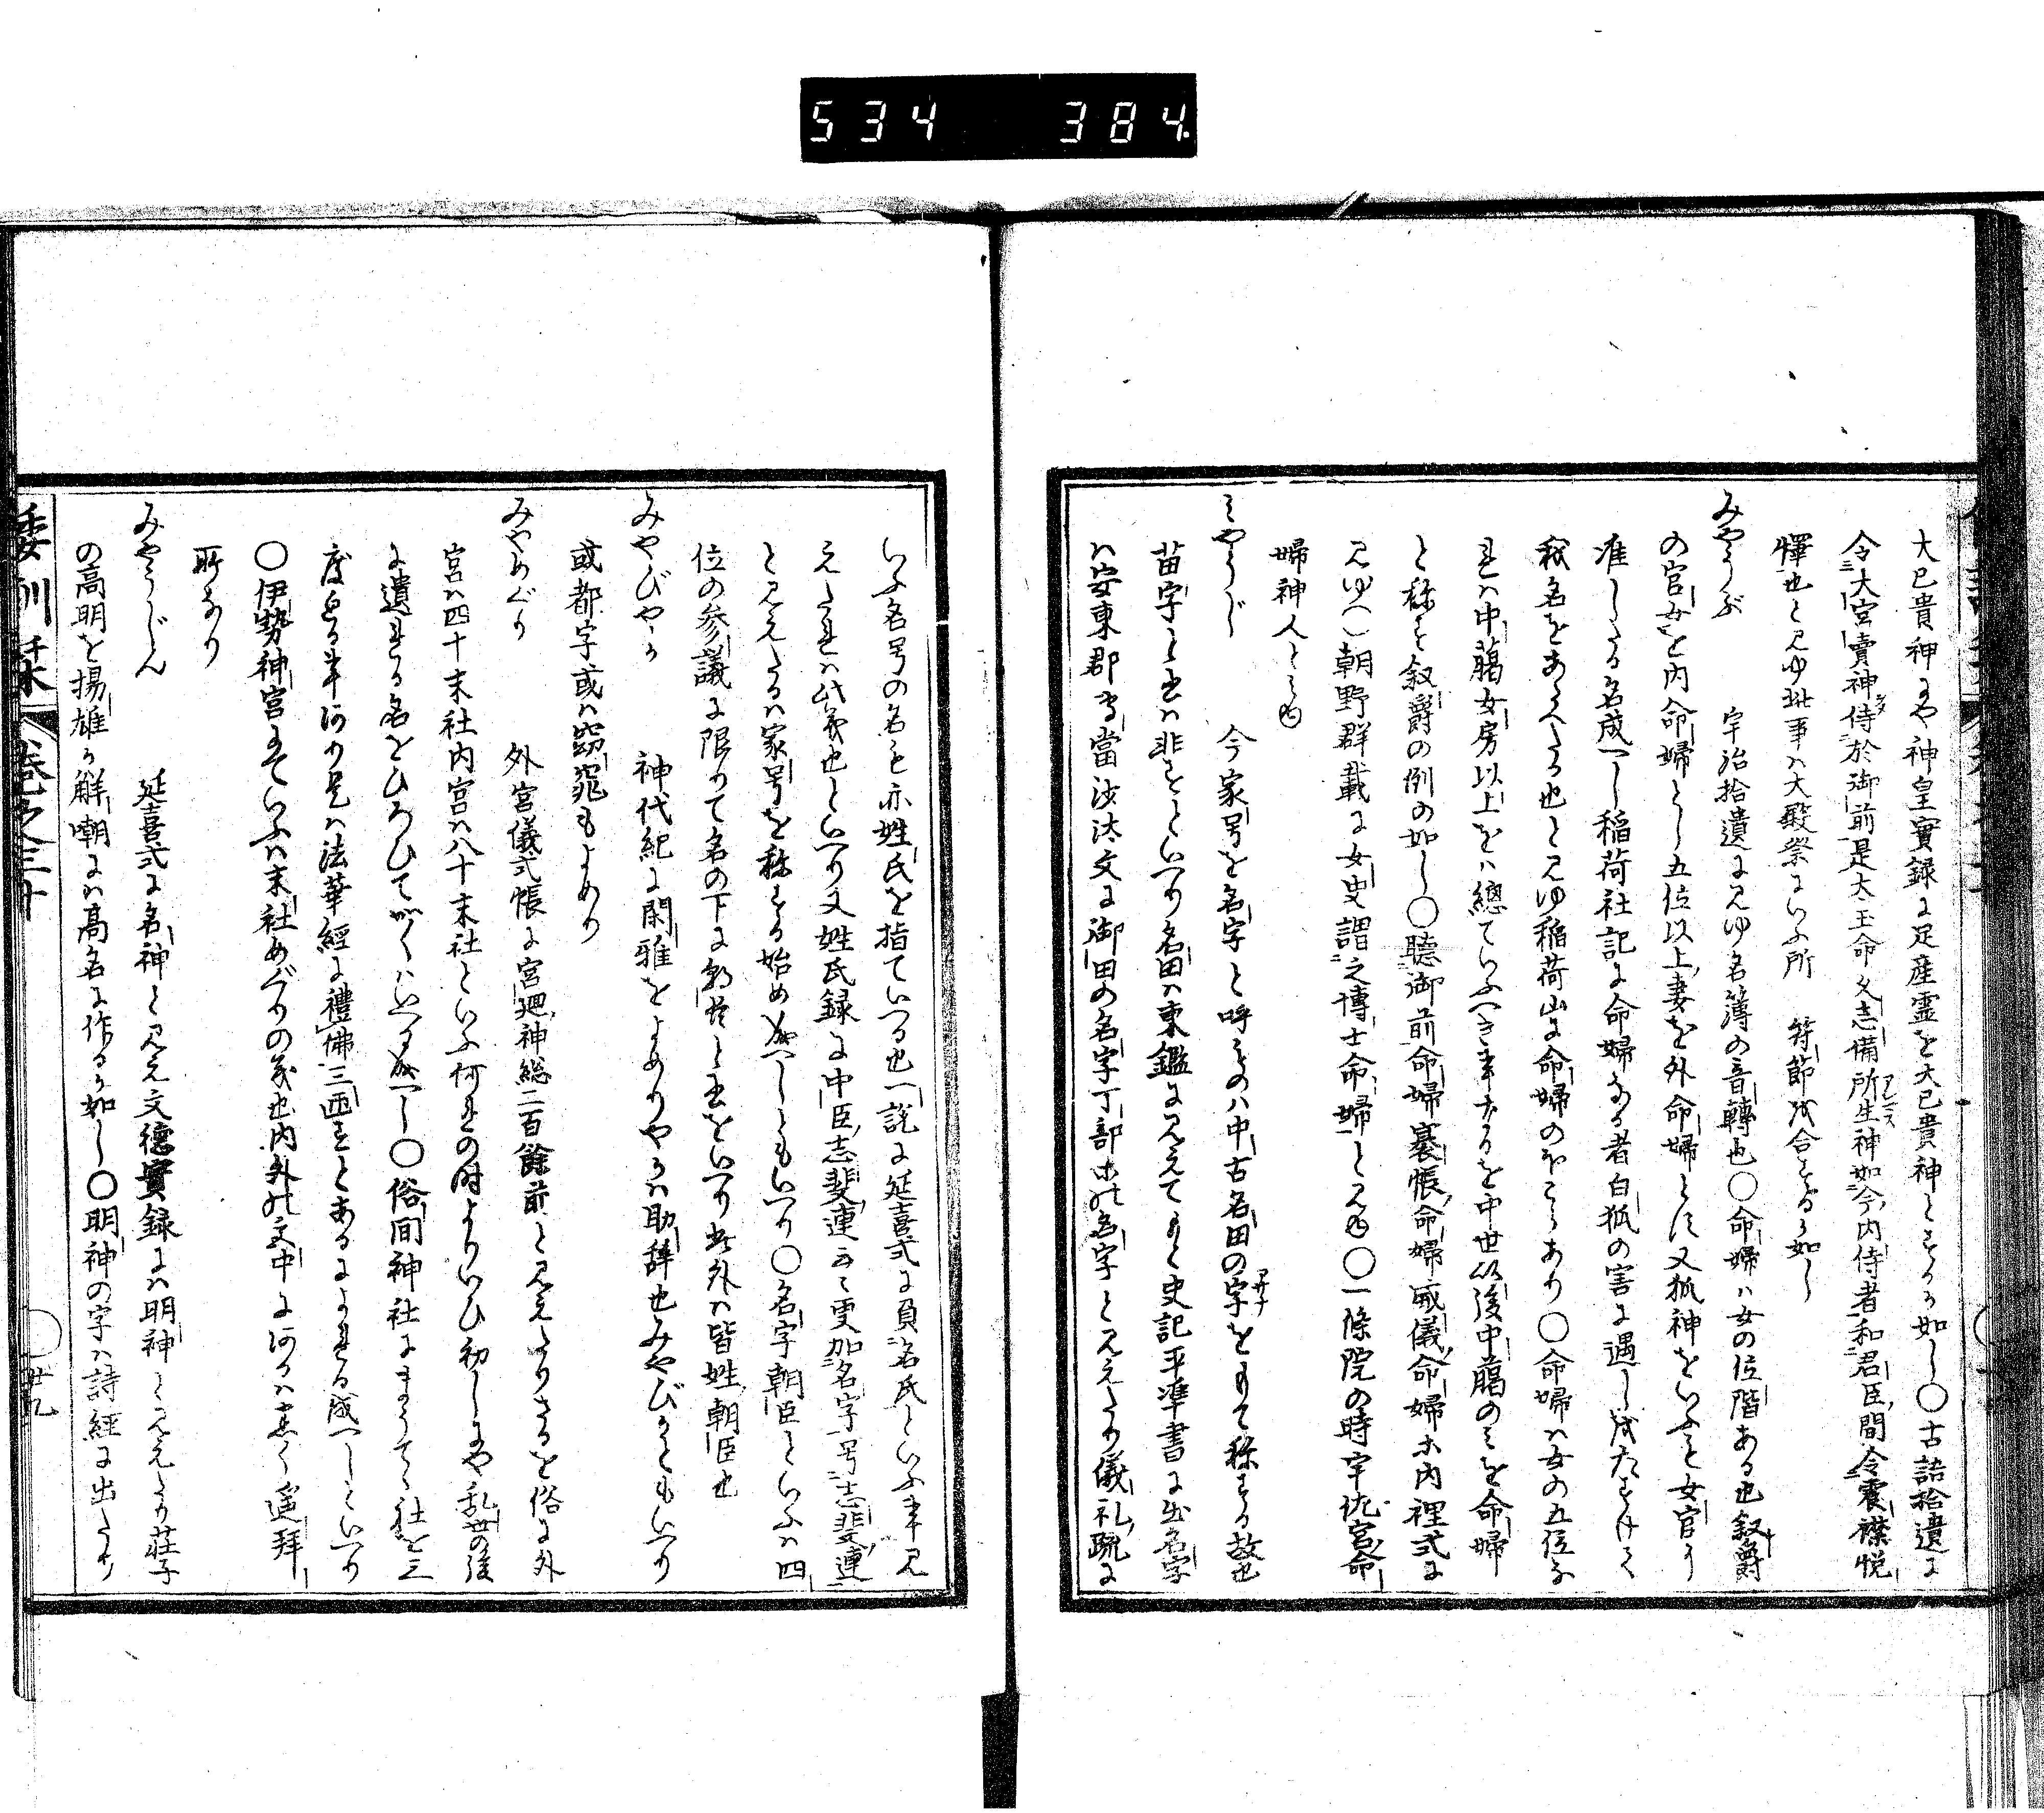 534 384.
大已貴神にや神皇實録に足産霊を大已貴神とするか如し○古語拾遺に
令大宮賣神侍於御前是太玉命久志備所生神如今内侍者和君臣間令宸襟悦
懌也と見ゆ此事ハ大殿祭にいふ所 符節我合するか如し
みやうぶ 宇治拾遺に見ゆ名簿の音轉也○命婦ハ女の位階ある也叙爵
の官女を内命婦とし五位以上妻を外命婦とに又狐神をいふも女官に
准したる名成へし稲荷社記に命婦なる者白狐の害に遇し我たすけて
我名をあたへたる也と見ゆ稲荷山に命婦のほこらあり○命婦ハ女の五位な
れハ中臈女房以上をハ總ていふへき事なるを中世以後中臈のミを命婦
と称も叙爵の例の如し○聴御前命婦褰帳命婦威儀命婦ホ内裡式に
見ゆへし朝野群載に女史謂之博士命婦と見ゆ○一條院の時宇佐宮命
婦神人とミゆ
ミやうじ 今家号を名字と呼ものハ中古名田の字をもて称する故也
苗字と書ハ非もといへり名田ハ東鑑に見えてもと史記平準書に出名字
ハ安東郡専當沙汰文に御田の名字丁部ホの名字と見えたり儀礼疏に
いふ名号の名も亦姓氏を指ていへる也一説に延喜式に負名氏といふ事見
えたれハ此義也といへり又姓氏録に中臣志斐連云々更加名字号志斐連
と見えたるハ家号を称する始め成へしともいへり○名字朝臣といふハ四
位の参議に限りて名の下に朝臣と書をいへり此外ハ皆姓朝臣也
みやびやか 神代紀に閑雅をよめりやかハ助辞也みやびかともいへり
或都字或ハ窈窕もよめり
みやめぐり 外宮儀式帳に宮廻神総二百餘前と見えたりさるを俗に外
宮ハ四十末社内宮ハ八十末社といふ何れの時よりいひ初しにや乱世の後
に遺れる名をひろひてかくハいへる成へし○俗間神社にまうてゝ社を三
度めくる事何り是ハ法華經に禮佛三匝もとあるによれる成へしといへり
○伊勢神宮にていふハ末社めぐりの義也内外の文中に何るハ悉く遥拝
所なり
みやうじん 延喜式に名神と見え文德實録にハ明神と見えたり荘子
の高明を揚雄か解嘲にハ高名に作るか如し○明神の字ハ詩經に出たり
倭訓栞 巻之三十 卅九